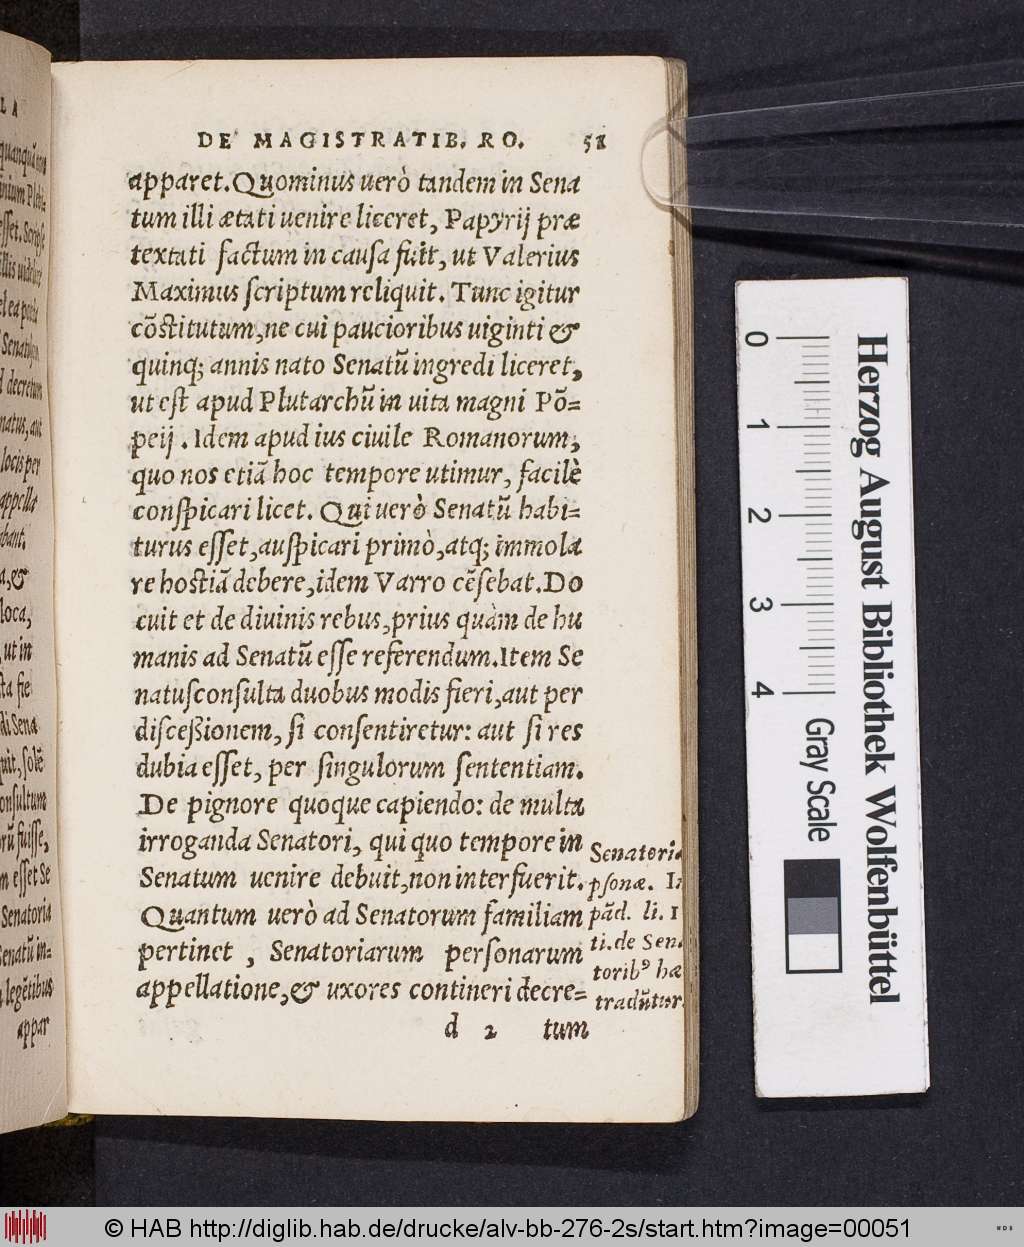 LA
DE MAGISTRATIB. RO. 51
apparet. Quominus uerò tandem in Sena
tum illi ætati uenire liceret, Papyrij præ
textati factum in causa fuit, ut Valerius
Maximus scriptum reliquit. Tunc igitur
cōstitutum, ne cui paucioribus uiginti &
quinq; annis nato Senatū ingredi liceret,
ut est apud Plutarchū in uita magni Pō=
peij. Idem apud ius ciuile Romanorum,
quo nos etiā hoc tempore utimur, facilè
conspicari licet. Qui uerò Senatū habi=
turus esset, auspicari primò, atq; immola
re hostiā debere, idem Varro cēsebat. Do
cuit et de diuinis rebus, prius quàm de hu
manis ad Senatū esse referendum. Item Se
natusconsulta duobus modis fieri, aut per
disceßionem, si consentiretur: aut si res
dubia esset, per singulorum sententiam.
De pignore quoque capiendo: de multa
irroganda Senatori, qui quo tempore in
Senatum uenire debuit, non interfuerit.
Quantum uerò ad Senatorum familiam
pertinet, Senatoriarum personarum
appellatione, & uxores contineri decre=
d 2 tum
Senatoria
psonæ. I
pād. li. I
ti. de Sena
toribꝰ hæ
tradūtur.
0
1
2
3
4
Gray Scale
Herzog August Bibliothek Wolfenbüttel
© HAB http://diglib.hab.de/drucke/alv-bb-276-2s/start.htm?image=00051